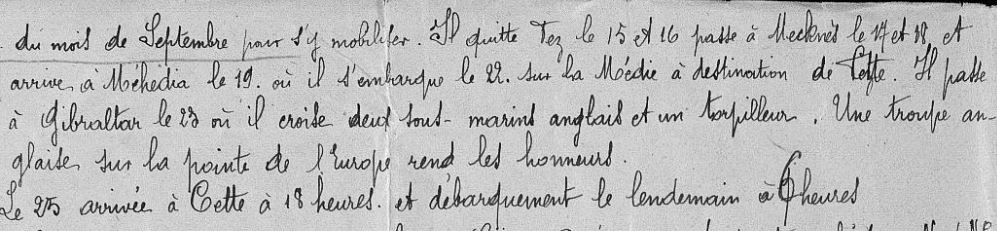 du mois de Septembre pour s'y mobiliser. Il quitte Fez le 15 et 16 passe à Mecknès le 17 et 18 et
arrive à Méhédia le 19. où il s'embarque le 22. sur la Médie à destination de Cette. Il passe
à Gibraltar le 23 où il croise deux sous-marins anglais et un torpilleur. Une troupe an-
glaise sur la pointe de l'Europe rend les honneurs.
Le 25 arrivée à Cette à 18 heures. et débarquement le lendemain à 6 heures